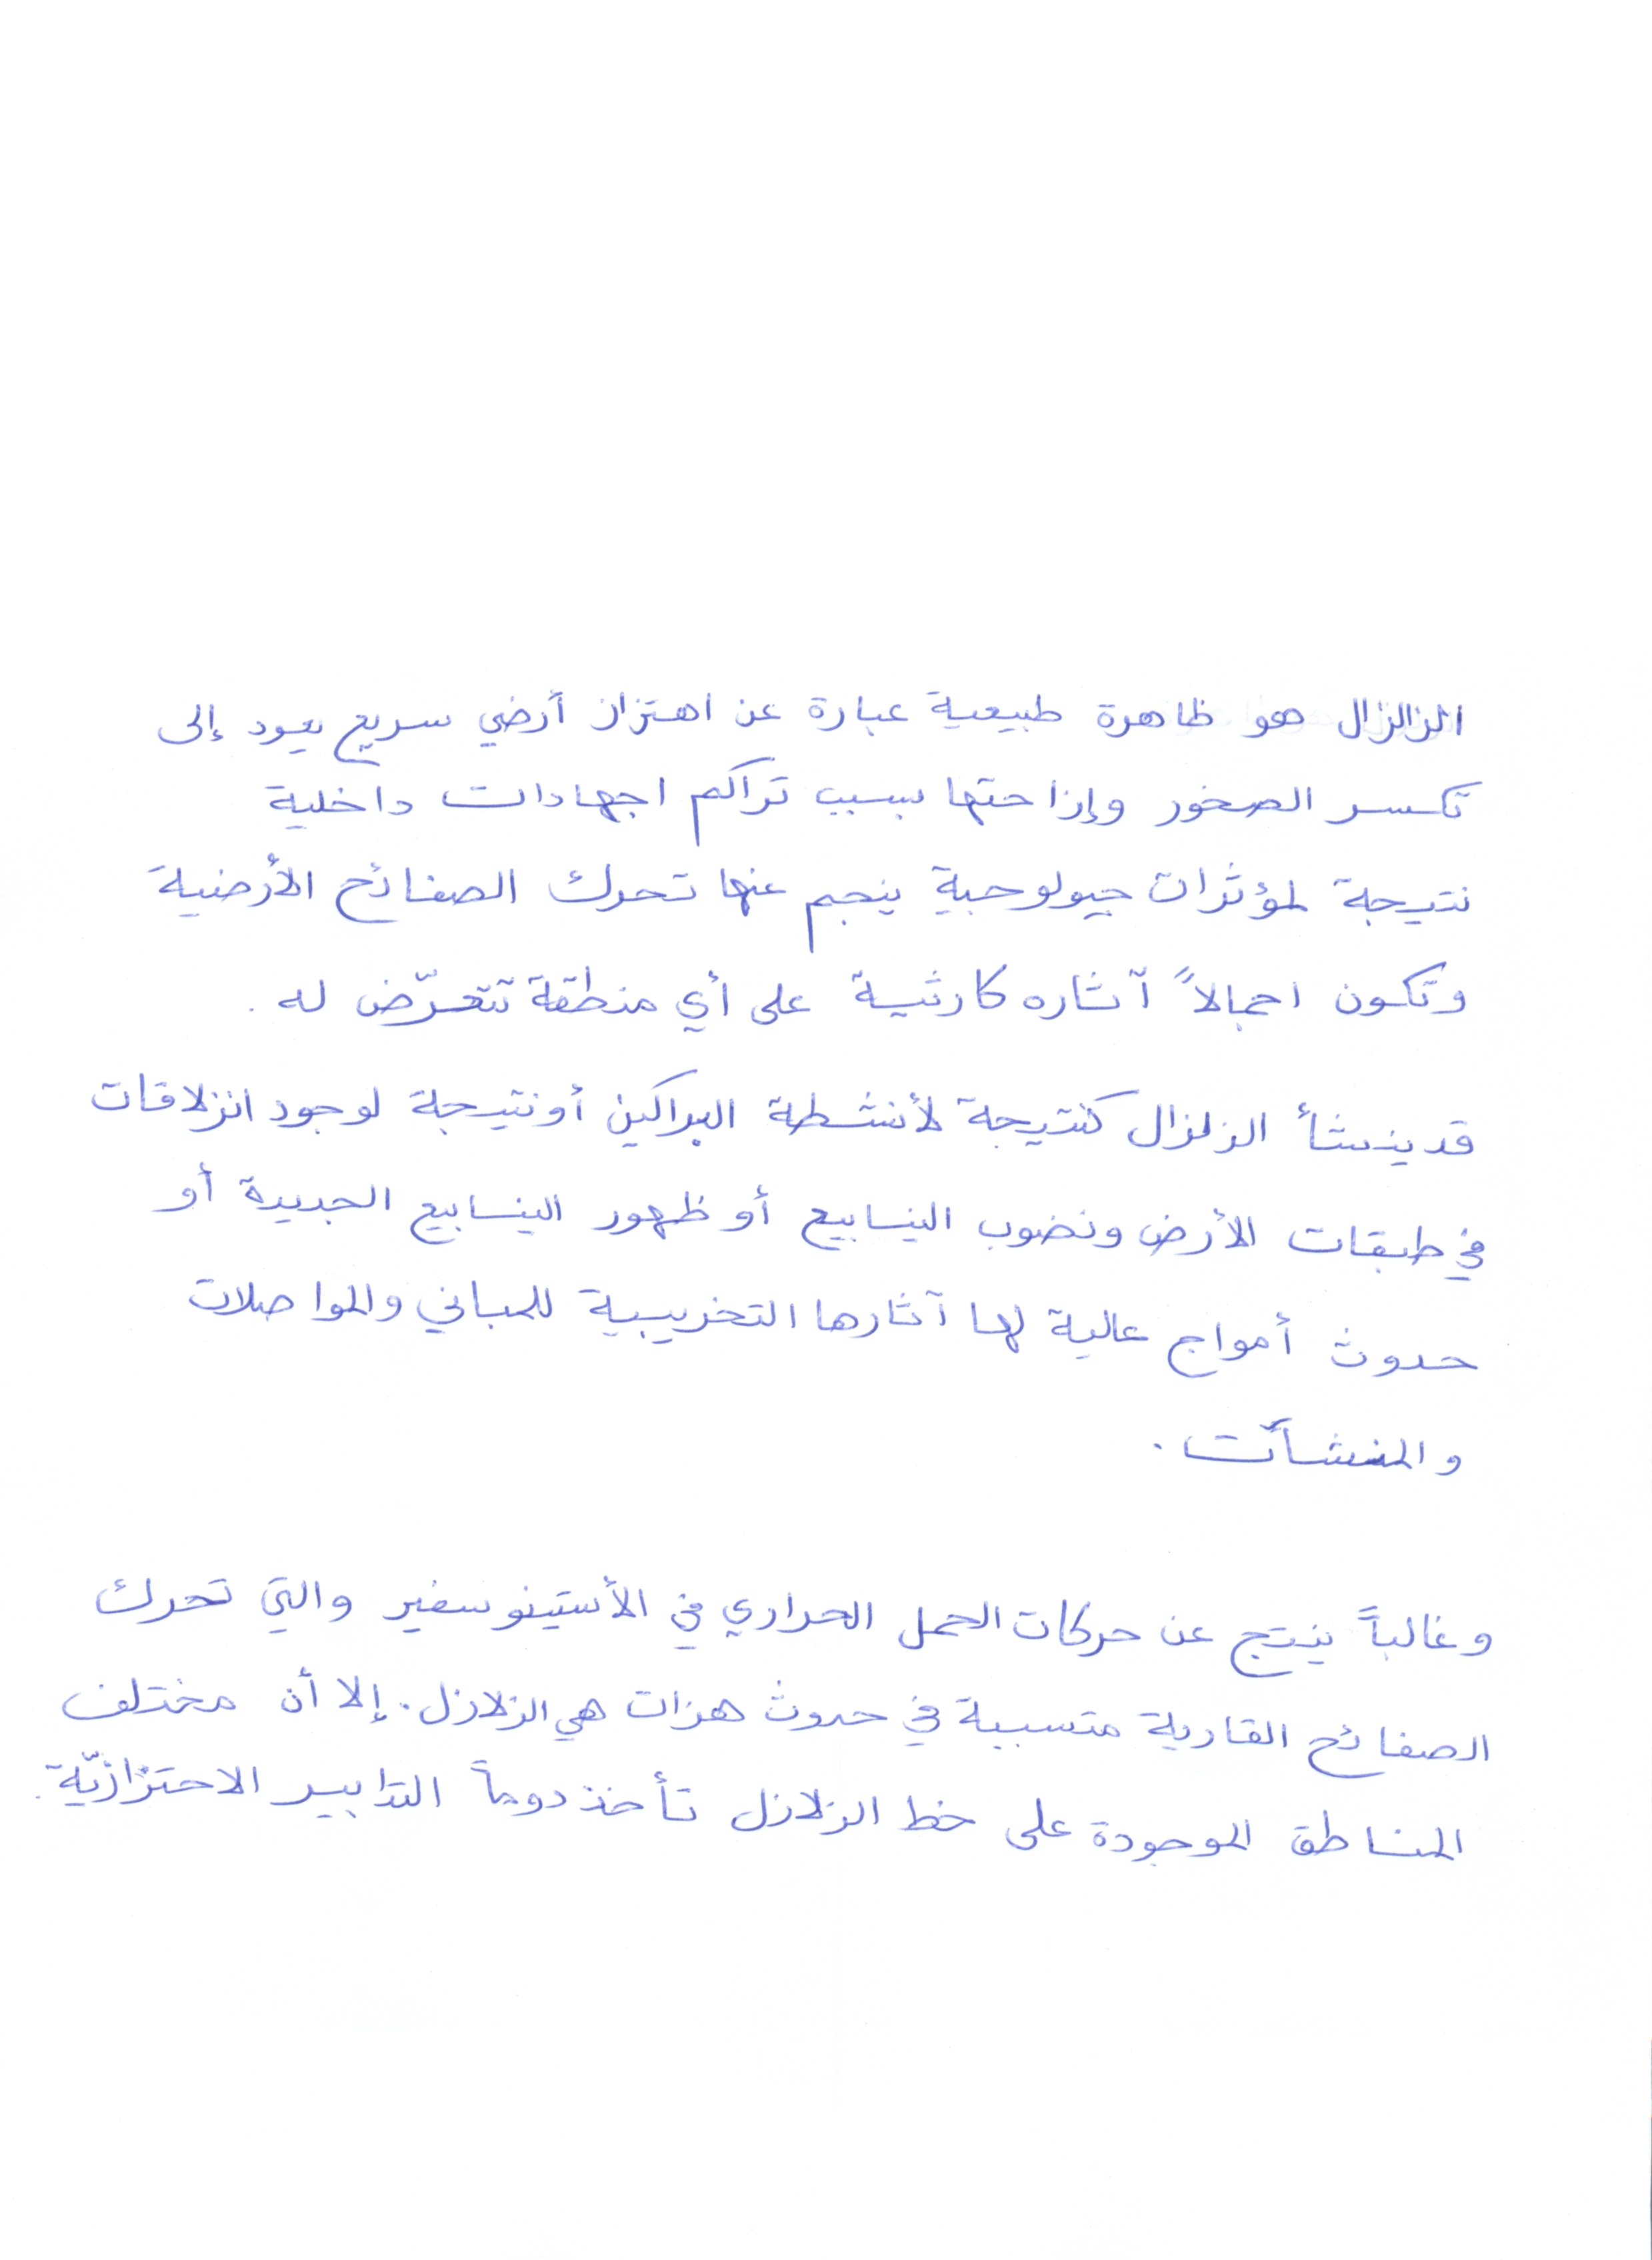 الزالزال هو ظاهرة طبيعية عبارة عن اهتزاز أرضي سريع يعود إلى
تكسر الصخور وإزاحتها بسبب تراكم اجهادات داخلية
نتيجة لمؤثرات جيولوجية ينجم عنها تحرك الصفائح الأرضية
وتكون اجمالاً آثاره كارثية على أي منطقة تتعرّض له .
قد ينشأ الزلزال كنتيجة لأنشطة البراكين أو نتيجة لوجود انزلاقات
في طبقات الأرض ونضوب الينابيع أو ظهور الينابيع الجديدة أو
حدوث أمواج عالية لها آثارها التخريبية للمباني والمواصلات
والمنشآت .
وغالباً ينتج عن حركات الحمل الحراري في الأستينوسفير والتي تحرك
الصفائح القارية متسببة في حدوث هزات هي الزلازل. إلا أن مختلف
المناطق الموجودة على خط الزلازل تأخذ دوماً التدابير الاحتزازيّة.